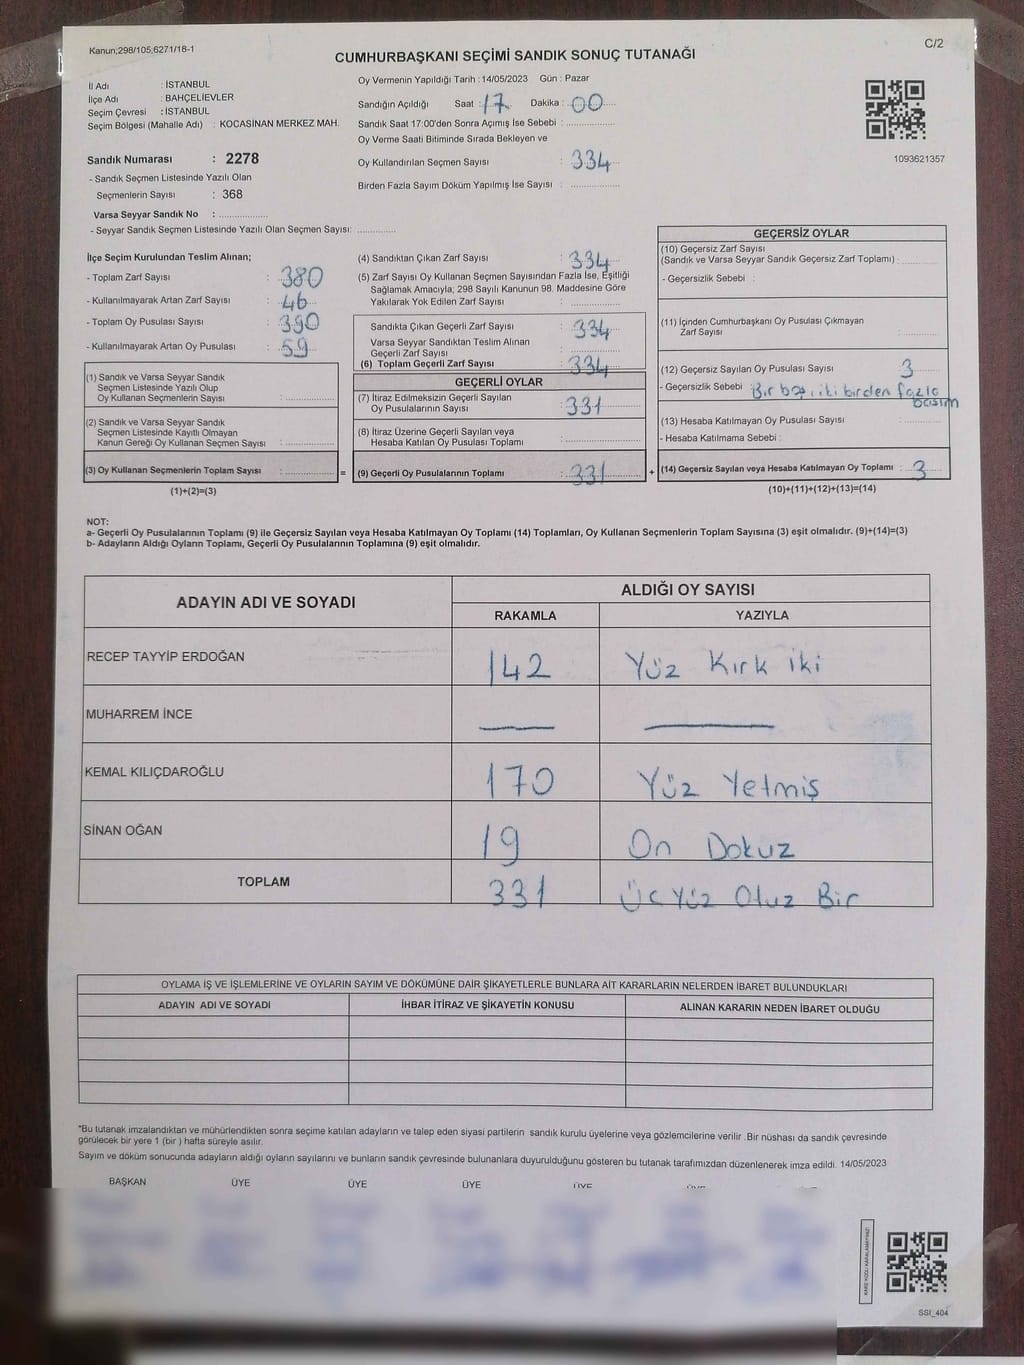 Kanun;298/105;6271/18-1
C/2
CUMHURBAŞKANI SEÇİMİ SANDIK SONUÇ TUTANAĞI
İl Adı : İSTANBUL
İlçe Adı : BAHÇELİEVLER
Seçim Çevresi : İSTANBUL
Seçim Bölgesi (Mahalle Adı) : KOCASİNAN MERKEZ MAH.
Sandık Numarası : 2278
- Sandık Seçmen Listesinde Yazılı Olan
Seçmenlerin Sayısı : 368
Varsa Seyyar Sandık No : ..................
- Seyyar Sandık Seçmen Listesinde Yazılı Olan Seçmen Sayısı: .............
Oy Vermenin Yapıldığı Tarih : 14/05/2023 Gün : Pazar
Sandığın Açıldığı Saat : 17 Dakika : 00
Sandık Saat 17:00'den Sonra Açımış İse Sebebi : ....................
Oy Verme Saati Bitiminde Sırada Bekleyen ve
Oy Kullandırılan Seçmen Sayısı : 334
Birden Fazla Sayım Döküm Yapılmış İse Sayısı : ................
1093621357
İlçe Seçim Kurulundan Teslim Alınan;
- Toplam Zarf Sayısı : 380
- Kullanılmayarak Artan Zarf Sayısı : 46
- Toplam Oy Pusulası Sayısı : 390
- Kullanılmayarak Artan Oy Pusulası : 59
(1) Sandık ve Varsa Seyyar Sandık
Seçmen Listesinde Yazılı Olup
Oy Kullanan Seçmenlerin Sayısı : ..............
(2) Sandık ve Varsa Seyyar Sandık
Seçmen Listesinde Kayıtlı Olmayan
Kanun Gereği Oy Kullanan Seçmen Sayısı : ..............
(3) Oy Kullanan Seçmenlerin Toplam Sayısı : .............. =
(1)+(2)=(3)
(4) Sandıktan Çıkan Zarf Sayısı : 334
(5) Zarf Sayısı Oy Kullanan Seçmen Sayısından Fazla İse, Eşitliği
Sağlamak Amacıyla, 298 Sayılı Kanunun 98. Maddesine Göre
Yakılarak Yok Edilen Zarf Sayısı : ....................
Sandıkta Çıkan Geçerli Zarf Sayısı : 334
Varsa Seyyar Sandıktan Teslim Alınan
Geçerli Zarf Sayısı : ....................
(6) Toplam Geçerli Zarf Sayısı : 334
GEÇERLİ OYLAR
(7) İtiraz Edilmeksizin Geçerli Sayılan
Oy Pusulalarının Sayısı : 331
(8) İtiraz Üzerine Geçerli Sayılan veya
Hesaba Katılan Oy Pusulası Toplamı : ....................
(9) Geçerli Oy Pusulalarının Toplamı : 331 +
GEÇERSİZ OYLAR
(10) Geçersiz Zarf Sayısı
(Sandık ve Varsa Seyyar Sandık Geçersiz Zarf Toplamı) : ..........
- Geçersizlik Sebebi :
(11) İçinden Cumhurbaşkanı Oy Pusulası Çıkmayan
Zarf Sayısı : ..........
(12) Geçersiz Sayılan Oy Pusulası Sayısı : 3
- Geçersizlik Sebebi : Bir boş, iki birden fazla
basım
(13) Hesaba Katılmayan Oy Pusulası Sayısı : ..........
- Hesaba Katılmama Sebebi :
(14) Geçersiz Sayılan veya Hesaba Katılmayan Oy Toplamı : 3
(10)+(11)+(12)+(13)=(14)
NOT:
a- Geçerli Oy Pusulalarının Toplamı (9) ile Geçersiz Sayılan veya Hesaba Katılmayan Oy Toplamı (14) Toplamları, Oy Kullanan Seçmenlerin Toplam Sayısına (3) eşit olmalıdır. (9)+(14)=(3)
b- Adayların Aldığı Oyların Toplamı, Geçerli Oy Pusulalarının Toplamına (9) eşit olmalıdır.
ADAYIN ADI VE SOYADI
ALDIĞI OY SAYISI
RAKAMLA YAZIYLA
RECEP TAYYİP ERDOĞAN 142 Yüz Kırk iki
MUHARREM İNCE — —
KEMAL KILIÇDAROĞLU 170 Yüz Yetmiş
SİNAN OĞAN 19 On Dokuz
TOPLAM 331 Üç Yüz Otuz Bir
OYLAMA İŞ VE İŞLEMLERİNE VE OYLARIN SAYIM VE DÖKÜMÜNE DAİR ŞİKAYETLERLE BUNLARA AİT KARARLARIN NELERDEN İBARET BULUNDUKLARI
ADAYIN ADI VE SOYADI İHBAR İTİRAZ VE ŞİKAYETİN KONUSU ALINAN KARARIN NEDEN İBARET OLDUĞU
"Bu tutanak imzalandıktan ve mühürlendikten sonra seçime katılan adayların ve talep eden siyasi partilerin sandık kurulu üyelerine veya gözlemcilerine verilir .Bir nüshası da sandık çevresinde
görülecek bir yere 1 (bir ) hafta süreyle asılır.
Sayım ve döküm sonucunda adayların aldığı oyların sayılarını ve bunların sandık çevresinde bulunanlara duyurulduğunu gösteren bu tutanak tarafımızdan düzenlenerek imza edildi. 14/05/2023
BAŞKAN ÜYE ÜYE ÜYE ÜYE
KARE KODU KARALAMAYINIZ!
SSI_404